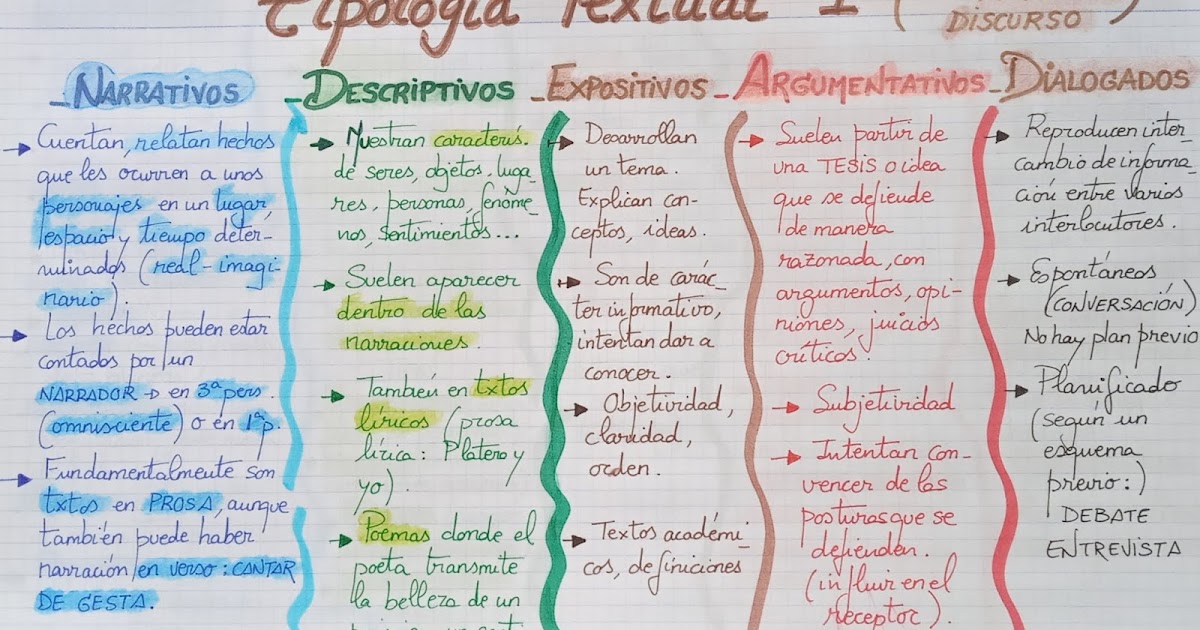 Tipología Textual 1 (
DISCURSO )
- NARRATIVOS
→ Cuentan, relatan hechos
que les ocurren a unos
personajes en un lugar,
espacio y tiempo deter-
minados (real-imagi-
nario).
→ Los hechos pueden estar
contados por un
NARRADOR → en 3ª pers.
(omnisciente) o en 1ª p.
→ Fundamentalmente son
txtos en PROSA, aunque
también puede haber
narración en verso: CANTAR
DE GESTA.
- DESCRIPTIVOS
→ Muestran caracterís.
de seres, objetos, luga-
res, personas, fenóme-
nos, sentimientos...
→ Suelen aparecer
dentro de las
narraciones.
→ También en txtos
líricos (prosa
lírica: Platero y
yo).
→ Poemas donde el
poeta transmite
la belleza de un
- EXPOSITIVOS
→ Desarrollan
un tema.
Explican con-
ceptos, ideas.
→ Son de carác-
ter informativo,
intentan dar a
conocer.
→ Objetividad,
claridad,
orden.
→ Textos académi-
cos, definiciones
- ARGUMENTATIVOS
→ Suelen partir de
una TESIS o idea
que se defiende
de manera
razonada, con
argumentos, opi-
niones, juicios
críticos.
→ Subjetividad
→ Intentan con-
vencer de las
posturas que se
defienden.
(influir en el
receptor).
- DIALOGADOS
→ Reproducen inter
cambio de informa-
ción entre varios
interlocutores.
→ Espontáneos
(CONVERSACIÓN)
No hay plan previo
→ Planificado
(según un
esquema
previo:)
DEBATE
ENTREVISTA